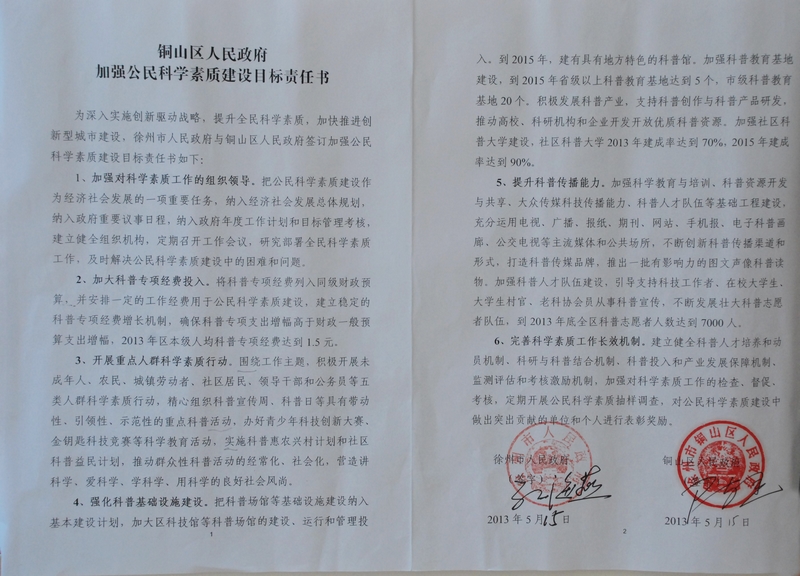 铜山区人民政府
加强公民科学素质建设目标责任书
为深入实施创新驱动战略，提升全民科学素质，加快推进创
新型城市建设，徐州市人民政府与铜山区人民政府签订加强公民
科学素质建设目标责任书如下；
1、加强对科学素质工作的组织领导。把公民科学素质建设作
为经济社会发展的一项重要任务，纳入经济社会发展总体规划，
纳入政府重要议事日程，纳入政府年度工作计划和目标管理考核，
建立健全组织机构，定期召开工作会议，研究部署全民科学素质
工作，及时解决公民科学素质建设中的困难和问题。
2、加大科普专项经费投入。将科普专项经费列入同级财政预
算，并安排一定的工作经费用于公民科学素质建设，建立稳定的
科普专项经费增长机制，确保科普专项支出增幅高于财政一般预
算支出增幅，2013年区本级人均科普专项经费达到1.5元。
3、开展重点人群科学素质行动。围绕工作主题，积极开展未
成年人、农民、城镇劳动者、社区居民、领导干部和公务员等五
类人群科学素质行动，精心组织科普宣传周、科普日等具有带动
性、引领性、示范性的重点科普活动，办好青少年科技创新大赛、
金钥匙科技竞赛等科学教育活动，实施科普惠农兴村计划和社区
科普益民计划，推动群众性科普活动的经常化、社会化，营造讲
科学、爱科学、学科学、用科学的良好社会风尚。
4、强化科普基础设施建设。把科普场馆等基础设施建设纳入
基本建设计划，加大区科技馆等科普场馆的建设、运行和管理投
1
入。到2015年，建有具有地方特色的科普馆。加强科普教育基地
建设，到2015年省级以上科普教育基地达到5个，市级科普教育
基地20个。积极发展科普产业，支持科普创作与科普产品研发，
推动高校、科研机构和企业开发开放优质科普资源。加强社区科
普大学建设，社区科普大学2013年建成率达到70%，2015年建成
率达到90%。
5、提升科普传播能力。加强科学教育与培训、科普资源开发
与共享、大众传媒科技传播能力、科普人才队伍等基础工程建设，
充分运用电视、广播、报纸、期刊、网站、手机报、电子科普画
廊、公交电视等主流媒体和公共场所，不断创新科普传播渠道和
形式，打造科普传媒品牌，推出一批有影响力的图文声像科普读
物。加强科普人才队伍建设，引导支持科技工作者、在校大学生、
大学生村官、老科协会员从事科普宣传，不断发展壮大科普志愿
者队伍，到2013年底全区科普志愿者人数达到7000人。
6、完善科学素质工作长效机制。建立健全科普人才培养和动
员机制、科研与科普结合机制、科普投入和产业发展保障机制、
监测评估和考核激励机制，加强对科学素质工作的检查、督促、
考核，定期开展公民科学素质抽样调查，对公民科学素质建设中
做出突出贡献的单位和个人进行表彰奖励。
徐州市人民政府
铜山区人民政府
2013年5月15日
2013年5月15日
2